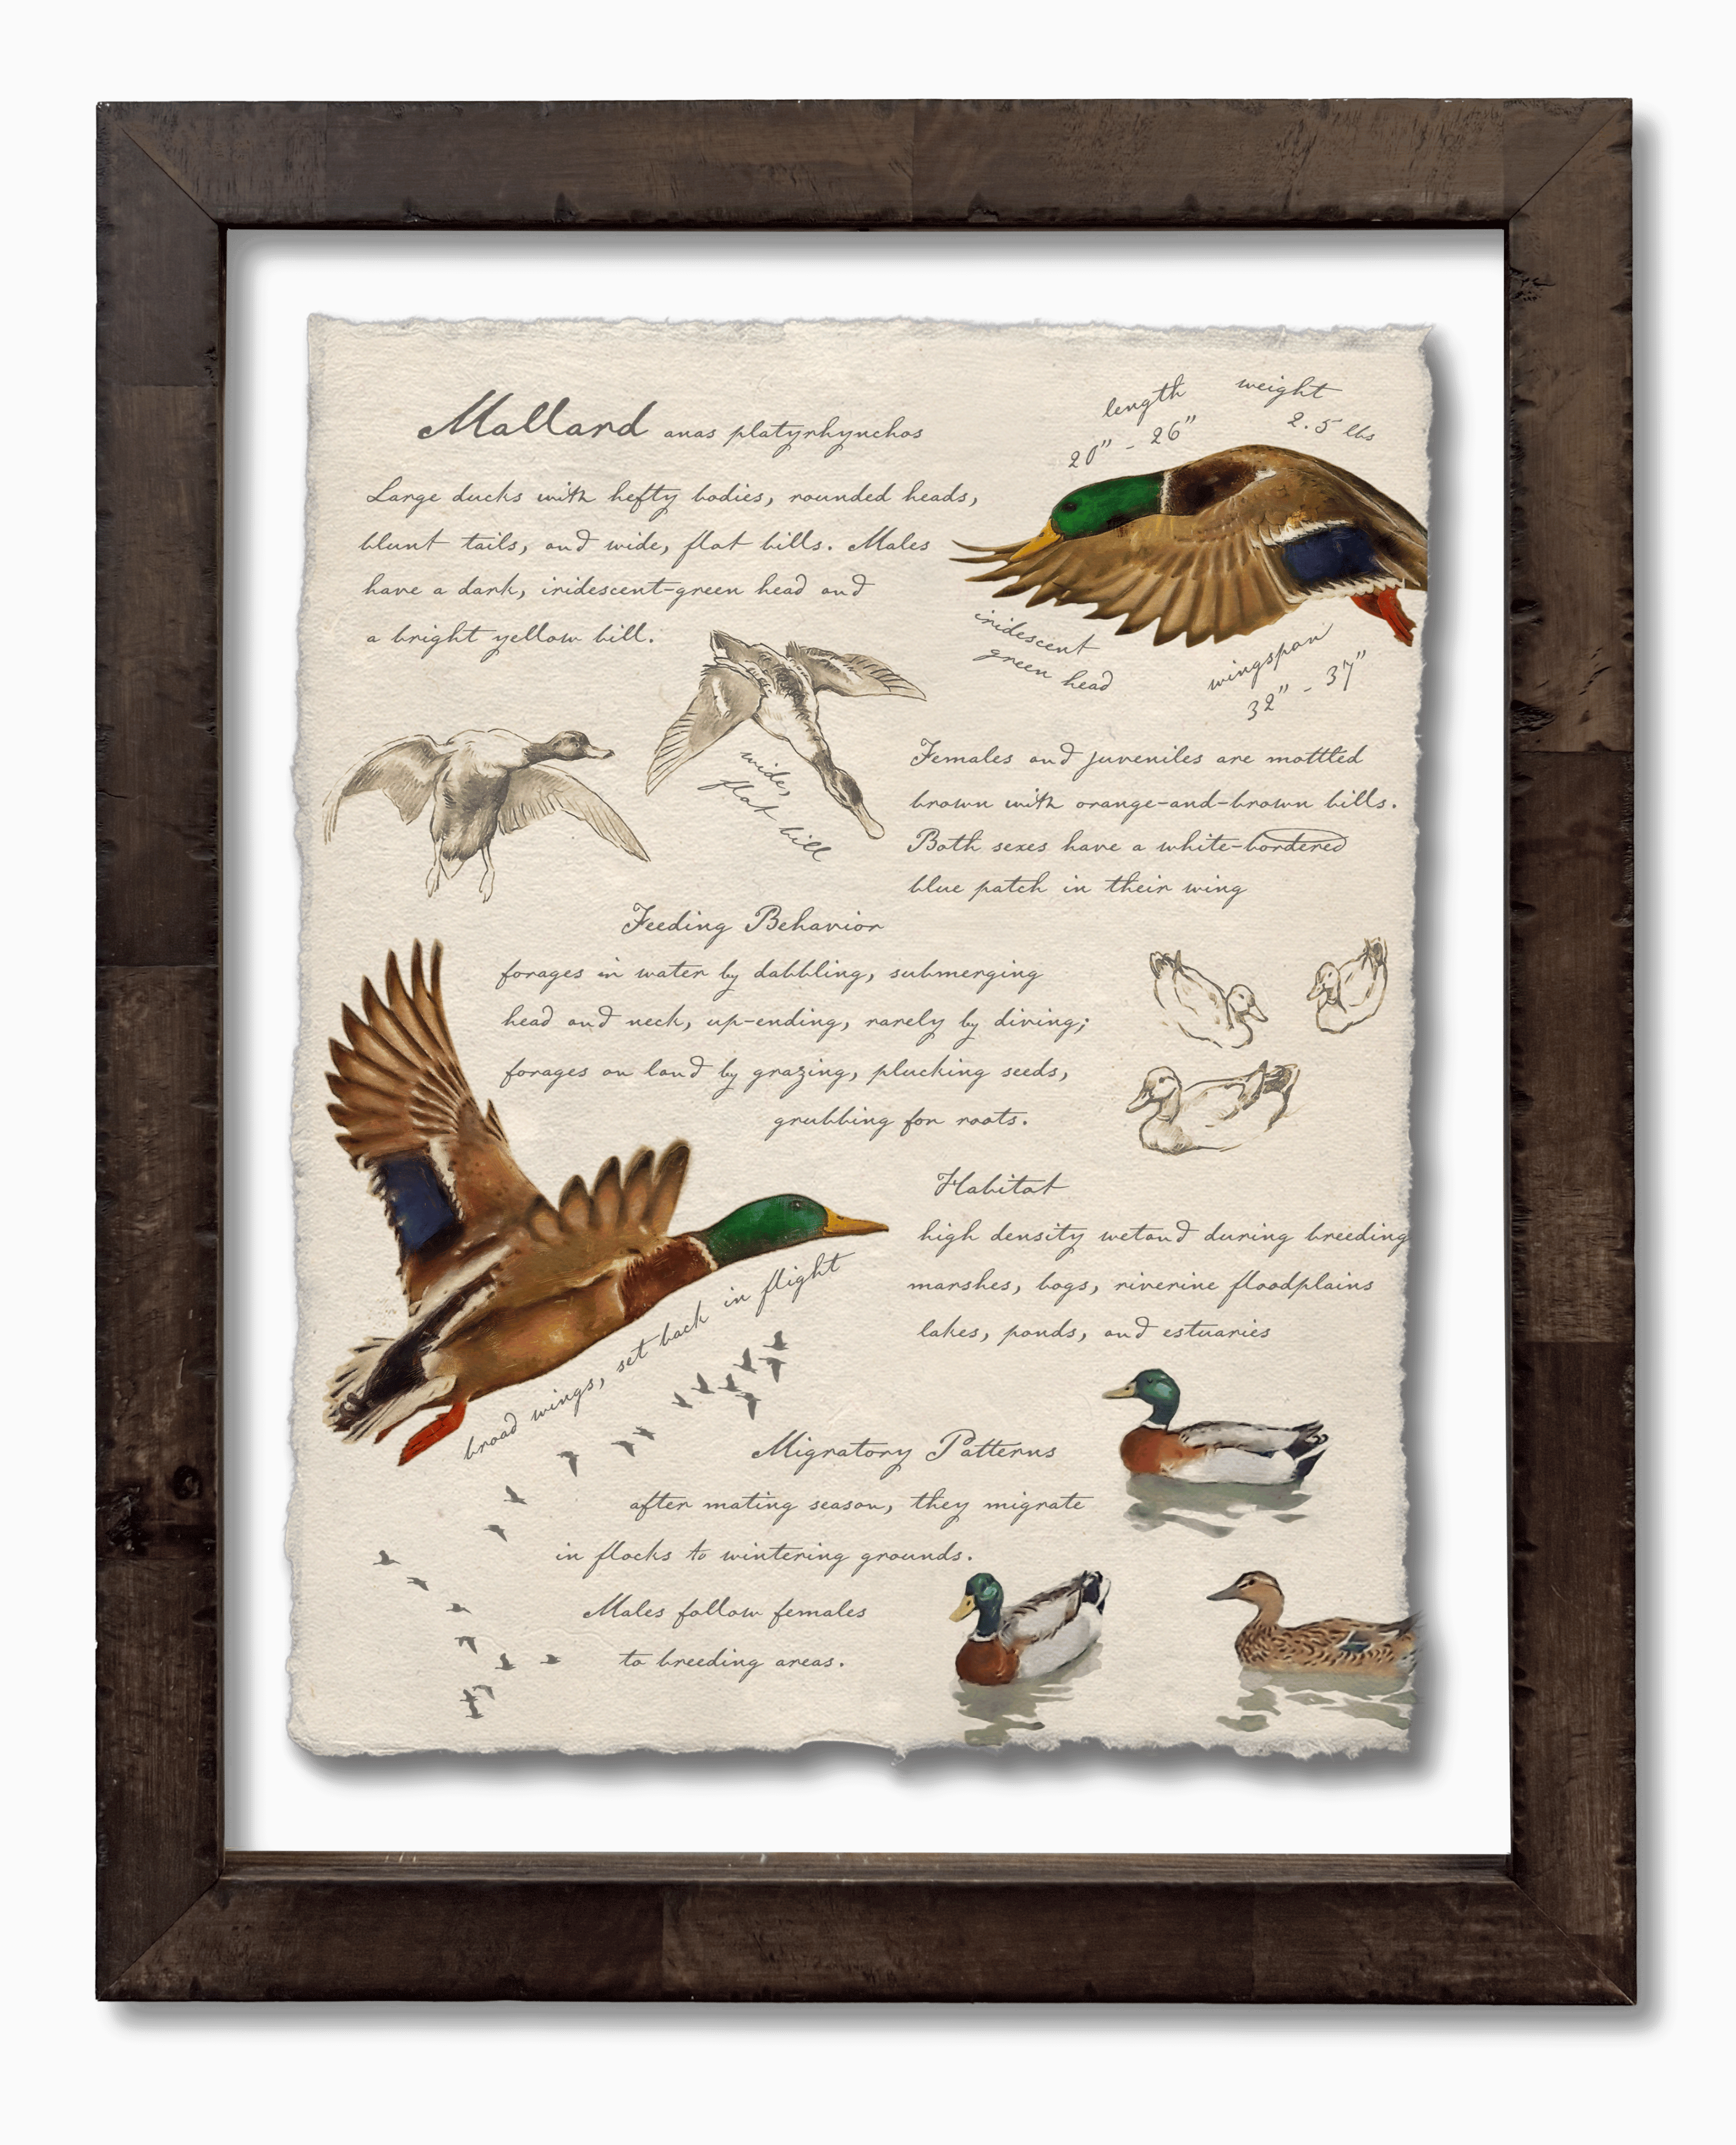 Mallard anas platyrhynchos
length
20" - 26"
weight
2.5 lbs
Large ducks with hefty bodies, rounded heads,
blunt tails, and wide, flat bills. Males
have a dark, iridescent-green head and
a bright yellow bill.
iridescent
green head
wingspan
32" - 37"
wide,
flat bill
Females and juveniles are mottled
brown with orange-and-brown bills.
Both sexes have a white-bordered
blue patch in their wing
Feeding Behavior
forages in water by dabbling, submerging
head and neck, up-ending, rarely by diving;
forages on land by grazing, plucking seeds,
grubbing for roots.
Habitat
high density wetand during breeding
marshes, bogs, riverine floodplains
lakes, ponds, and estuaries
broad wings, set back in flight
Migratory Patterns
after mating season, they migrate
in flocks to wintering grounds.
Males follow females
to breeding areas.